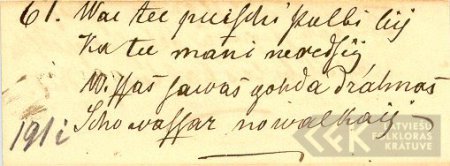 61. Wai tee puischi stulbi bij
Ka tee mani neredsej
Wissas sawas goda drahnas
Scho wassar nowalkaij
191i
LATVIEŠU
FOLKLORAS
KRĀTUVE